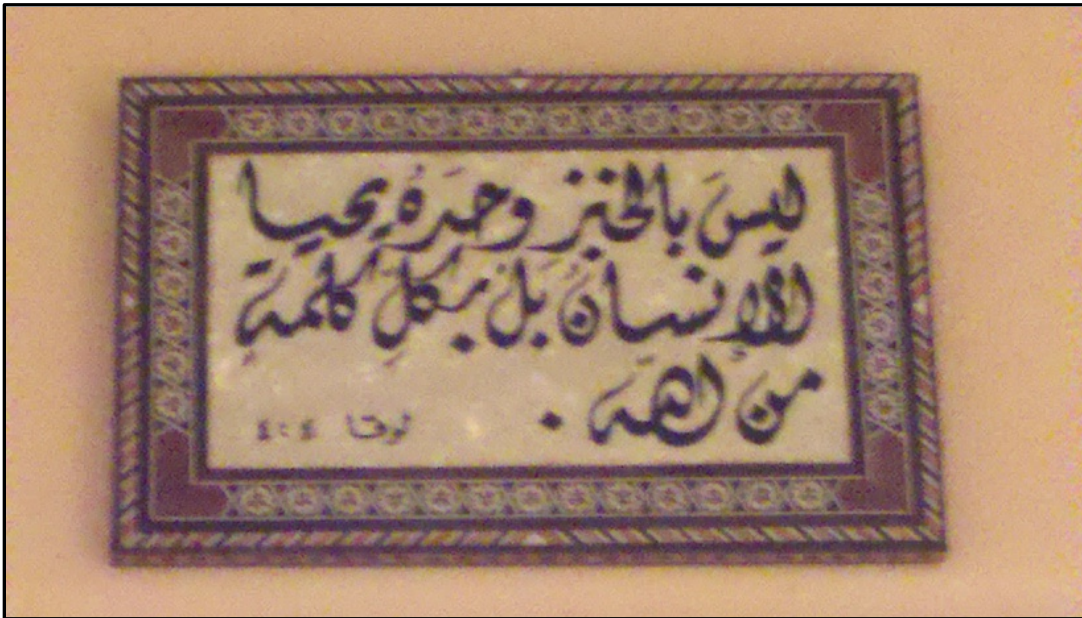 ليسَ بالخبز وحدَهُ يحيا
الإنسانُ بَل بكلِّ كلمةٍ
من الله .
لوقا ٤:٤